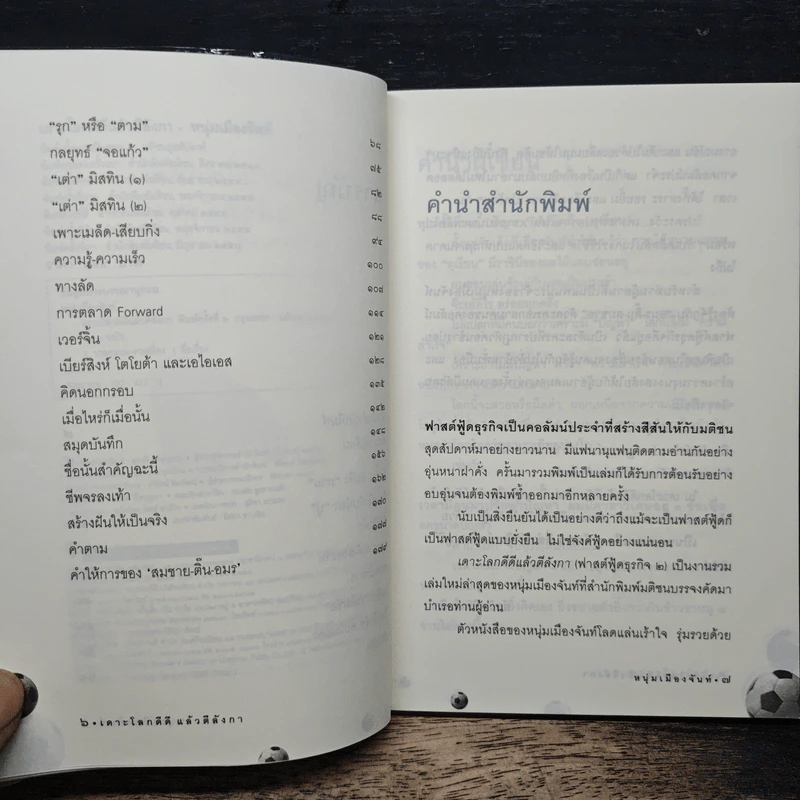 “รุก” หรือ “ตาม” ๖๘
กลยุทธ์ “จอแก้ว” ๗๕
“เต่า” มิสทิน (๑) ๘๒
“เต่า” มิสทิน (๒) ๘๘
เพาะเมล็ด-เสียบกิ่ง ๙๔
ความรู้-ความเร็ว ๑๐๐
ทางลัด ๑๐๗
การตลาด Forward ๑๑๔
เวอร์จิ้น ๑๒๑
เบียร์สิงห์ โตโยต้า และเอไอเอส ๑๒๘
คิดนอกกรอบ ๑๓๕
เมื่อไหร่ก็เมื่อนั้น ๑๔๒
สมุดบันทึก ๑๔๘
ชื่อนั้นสำคัญฉะนี้ ๑๕๖
ชีพจรลงเท้า ๑๖๒
สร้างฝันให้เป็นจริง ๑๗๐
คำตาม
คำให้การของ ‘สมชาย-ติ๊น-อมร’
๖ • เดาะโลกดีดี แล้วตีลังกา
คำนำสำนักพิมพ์
ฟาสต์ฟู้ดธุรกิจเป็นคอลัมน์ประจำที่สร้างสีสันให้กับมติชน
สุดสัปดาห์มาอย่างยาวนาน มีแฟนานุแฟนติดตามอ่านกันอย่าง
อุ่นหนาฝาคั่ง ครั้นมารวมพิมพ์เป็นเล่มก็ได้รับการต้อนรับอย่าง
อบอุ่นจนต้องพิมพ์ซ้ำออกมาอีกหลายครั้ง
นับเป็นสิ่งยืนยันได้เป็นอย่างดีว่าถึงแม้จะเป็นฟาสต์ฟู้ดก็
เป็นฟาสต์ฟู้ดแบบยั่งยืน ไม่ใช่จังค์ฟู้ดอย่างแน่นอน
เดาะโลกดีดีแล้วตีลังกา (ฟาสต์ฟู้ดธุรกิจ ๒) เป็นงานรวม
เล่มใหม่ล่าสุดของหนุ่มเมืองจันท์ที่สำนักพิมพ์มติชนบรรจงคัดมา
บำเรอท่านผู้อ่าน
ตัวหนังสือของหนุ่มเมืองจันท์โลดแล่นเร้าใจ รุ่มรวยด้วย
หนุ่มเมืองจันท์ • ๗